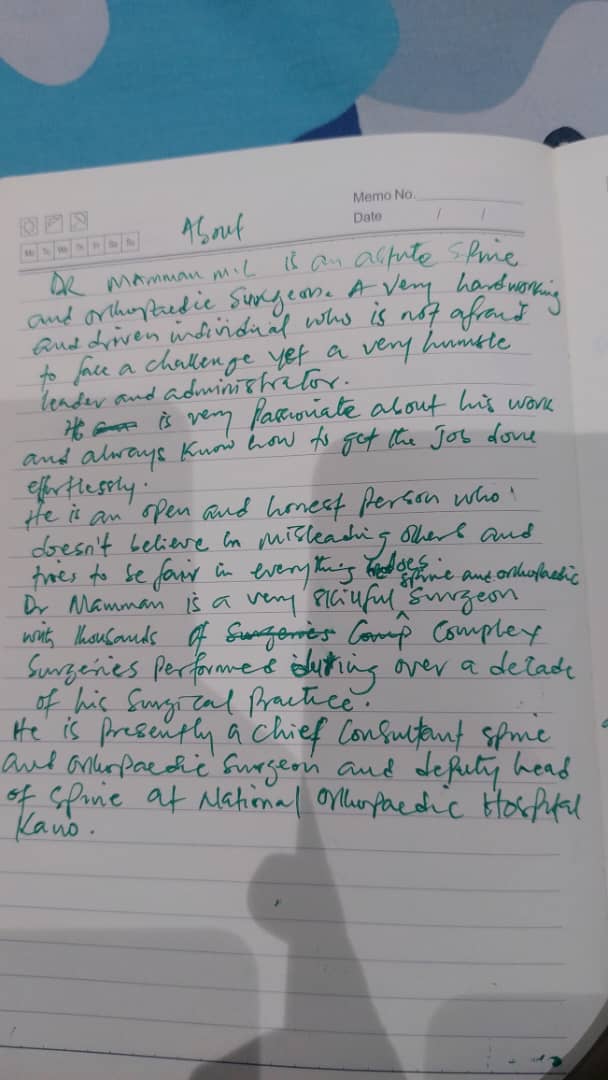 Memo No.
Date / /
Mo Tu We Th Fr Sa Su
About
DR Mamman M.L is an astute spine
and orthopaedic Surgeon. A very hardworking
and driven individual who is not afraid
to face a challenge yet a very humble
leader and administrator.
He is very passionate about his work
and always know how to get the job done
effortlessly.
He is an open and honest person who
doesn't believe in misleading others and
tries to be fair in everything he does.
Dr Mamman is a very skillful spine and orthopaedic Surgeon
with thousands of Surgeries Comp Complex
Surgeries performed during over a decade
of his Surgical Practice.
He is presently a chief Consultant spine
and orthopaedic Surgeon and deputy head
of spine at National Orthopaedic Hospital
Kano.